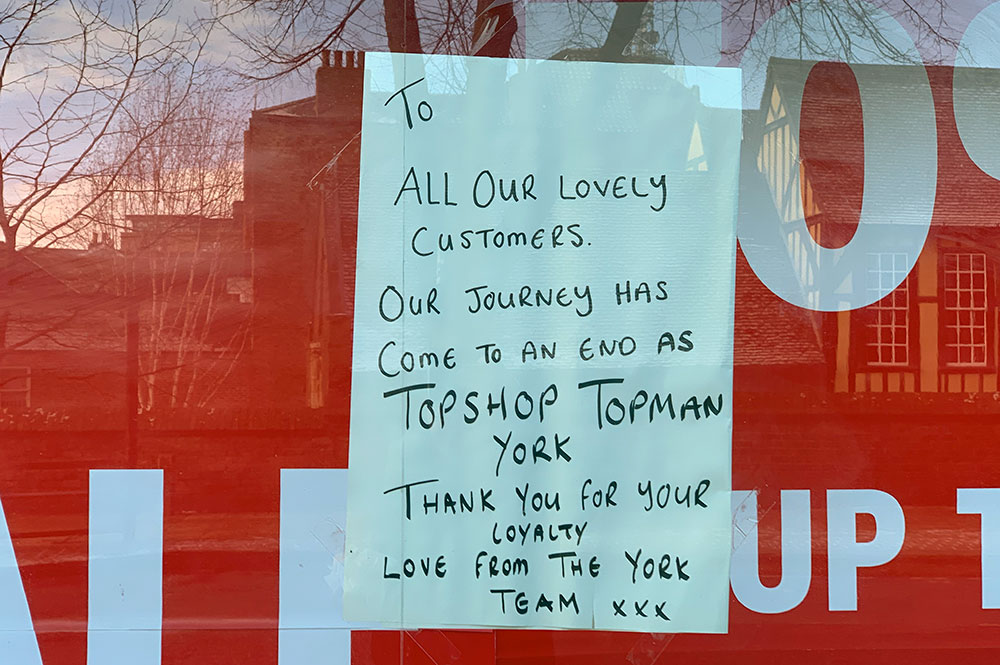 To
ALL OUR LOVELY
CUSTOMERS.
OUR JOURNEY HAS
COME TO AN END AS
TOPSHOP TOPMAN
YORK
THANK YOU FOR YOUR
LOYALTY
LOVE FROM THE YORK
TEAM xxx
UP T